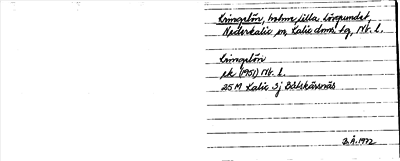 Limpelön, holme, lilla Lövgrundet,
Nederkalix sn, Kalix doms. tg, Nb. l.
Limpelön
ek (1951) Nb. l.
25 M Kalix 3j Båtskärsnäs
B.Å. 1972